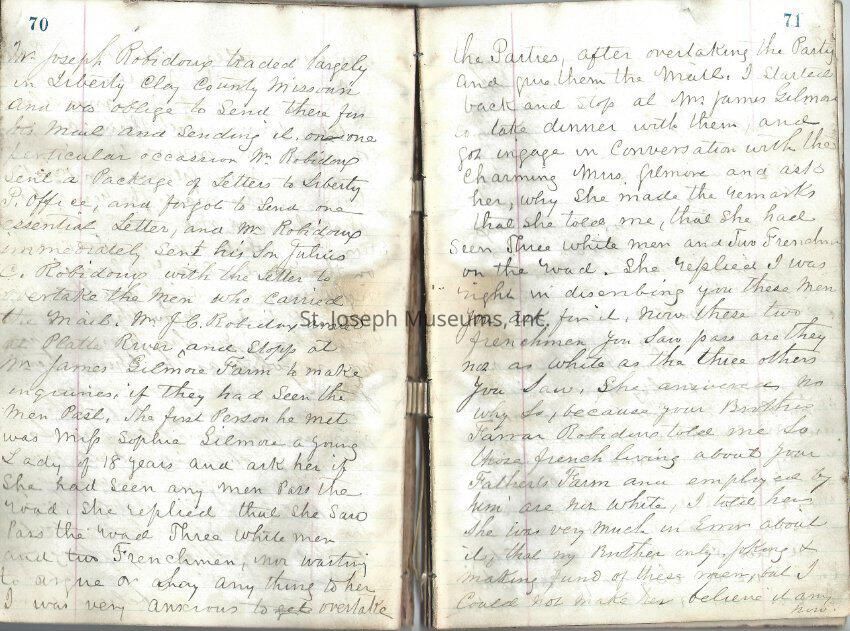 70
Mr. Joseph Robidoux traded largely
in Liberty Clay County Missouri
and was oblige to Send there for
his Mail and Sending it, on one
perticular occassion Mr Robidoux
Sent a Package of Letters to Liberty
P. Office, and forgot to Send one
essential Letter, and Mr Robidoux
immediately Sent his Son Julius
C. Robidoux with the Letter to
overtake the Men who carried
the Mail. Mr J. C. Robidoux
at Platte River and Stopp at
Mr James Gilmore Farm to make
inquiries, if they had Seen the
Men Past. The first Person he met
was Miss Sophia Gilmore a young
Lady of 18 years and ask her if
She had Seen any men Pass the
road. She replied that She Saw
Pass the road Three white men
and two Frenchmen, not wanting
to argue or any thing to her
I was very anxious to get overtake
71
the Parties, after overtaking the Party
and give them the Mail. I Started
back and Stop at Mr James Gilmore
to take dinner with them, and
got ingage in Conversation with the
Charming Miss Gilmore and ask
her, why She made the remarks
that She told me, that She had
Seen Three white men and Two Frenchmen
on the road. She replied I was
right in discribing you these Men
for it, now these two
frenchmen You Saw pass are they
not as white as the three others
You Saw. She answered no
why So, because your Brother
Farron Robidoux told me So
those french living about your
Father's Farm and employed by
him are not white, I told her
She was very much in Error about
it, that my Brother only Joking &
making fund of these men, but I
Could not make her believe it any
how.
St. Joseph Museums, Inc.